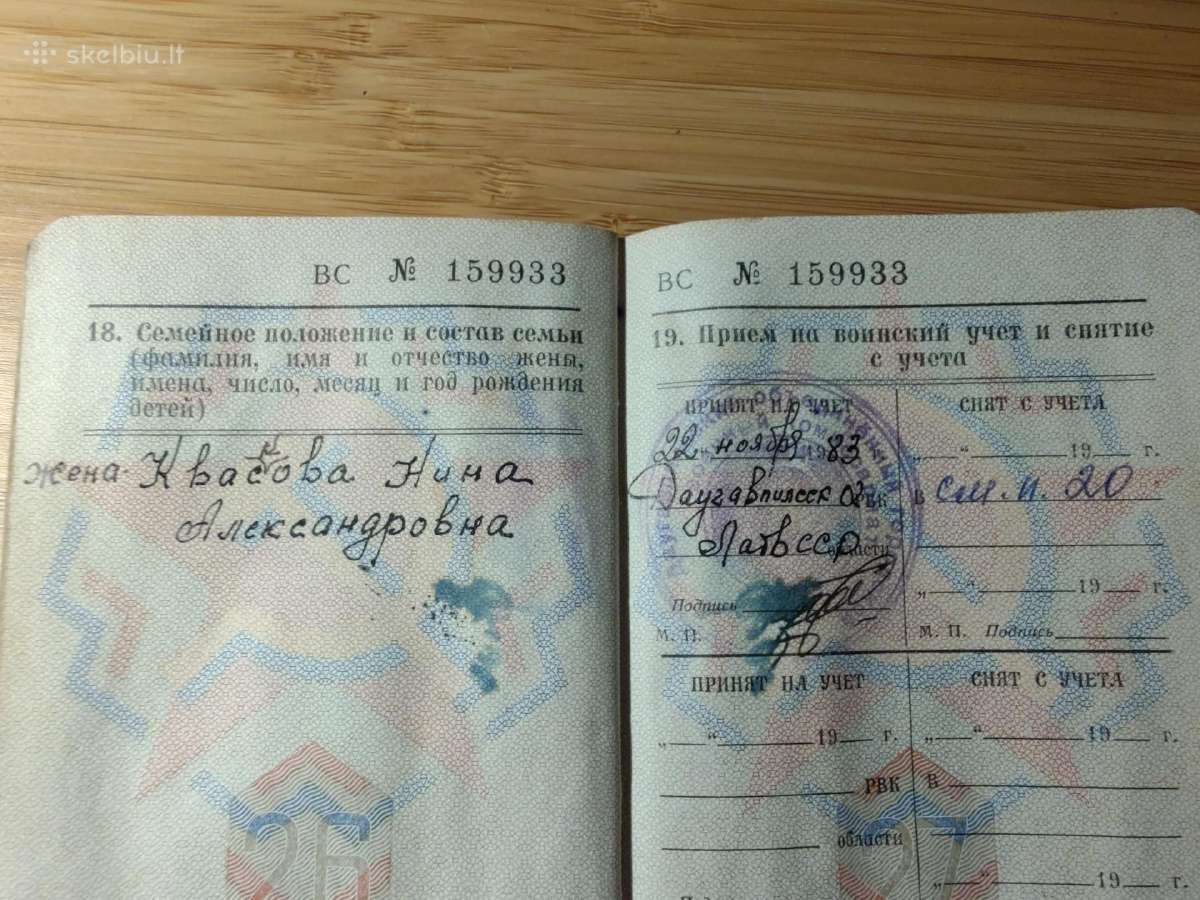 skelbiu.lt
ВС № 159933
18. Семейное положение и состав семьи
(фамилия, имя и отчество жены,
имена, число, месяц и год рождения
детей)
жена Квасова Нина
Александровна
26
ВС № 159933
19. Прием на воинский учет и снятие
с учета
ПРИНЯТ НА УЧЕТ
„22“ ноября 1983
Даугавпилсск О ВК
Латвсср области
Подпись
М. П.
СНЯТ С УЧЕТА
„ “ 19 г.
в см. п. 20
„ “ 19 г.
М. П. Подпись
ПРИНЯТ НА УЧЕТ
„ “ 19 г.
РВК
области
СНЯТ С УЧЕТА
„ “ 19 г.
В
„ “ 19 г.
27